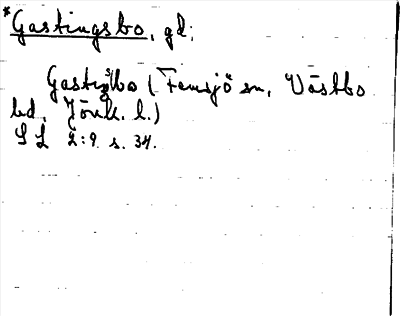 *Gastingsbo, gd;
Gastigsbo (Femsjö sn, Västbo
hd, Jönk. l.)
S L 2:9 s. 34.